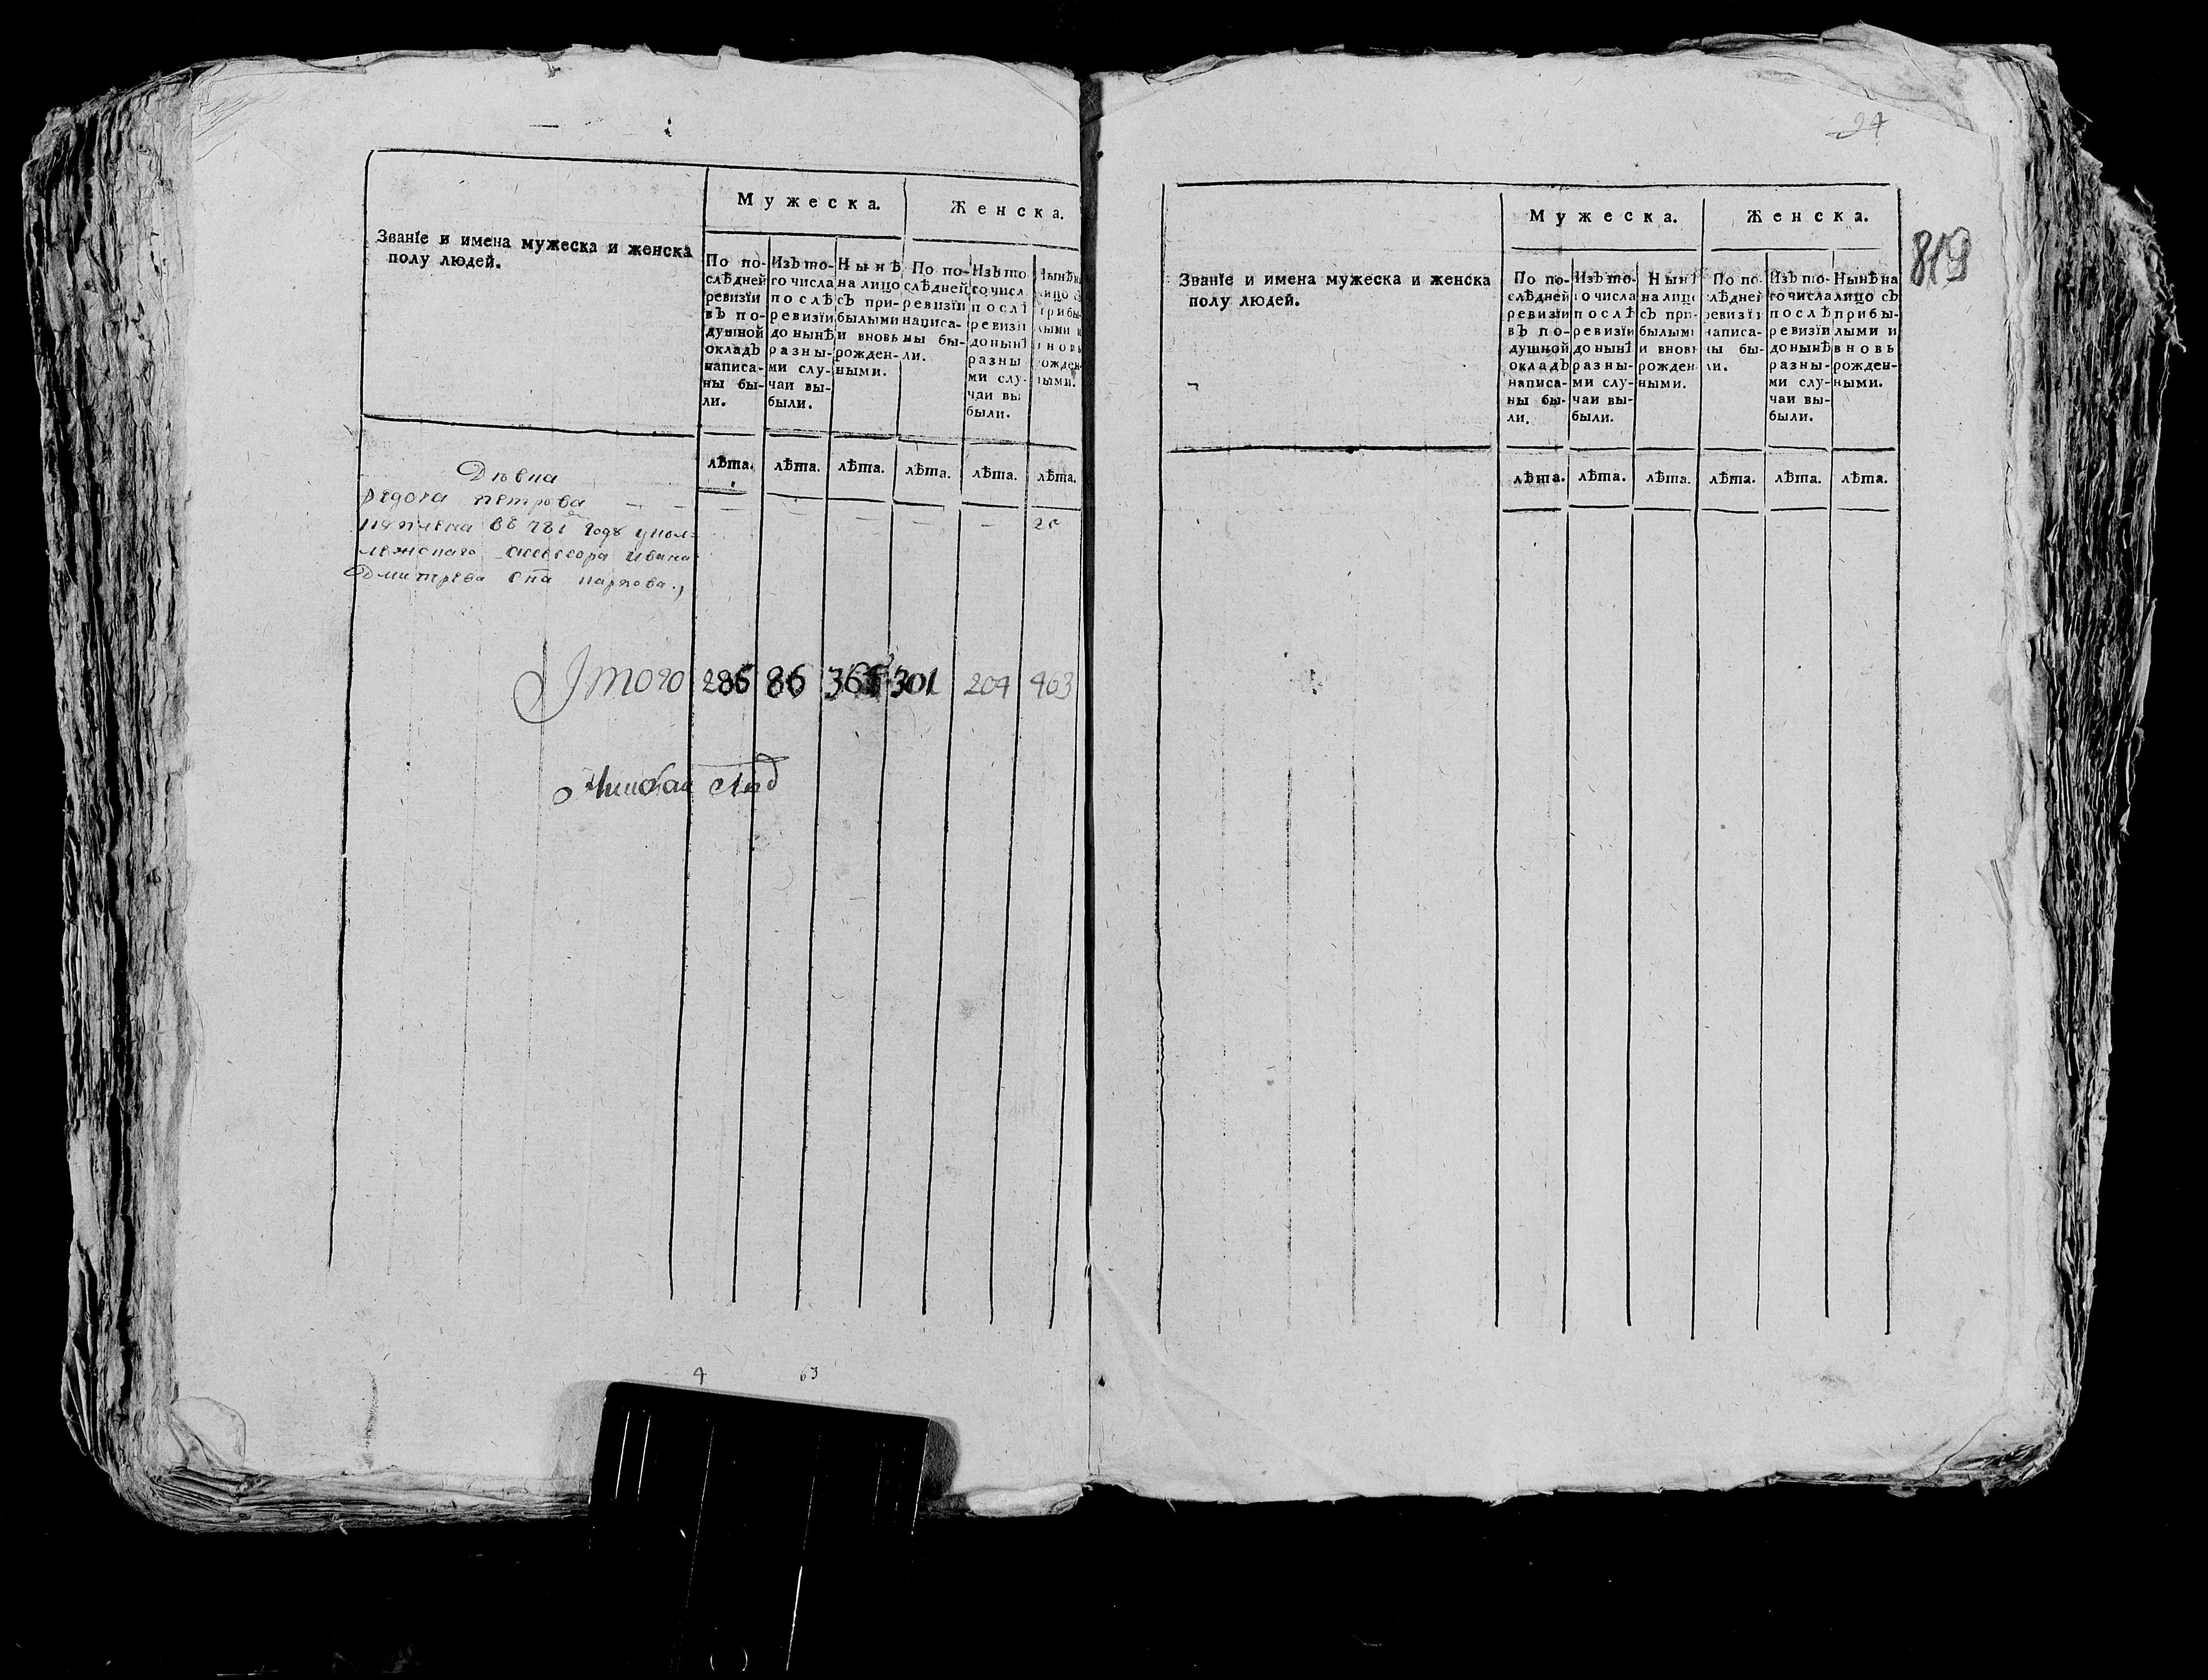 Мужеска.
Женска.
Званіе и имена мужеска и женска
полу людей.
По по-
слѣдней
ревизіи
въ по-
душной
окладъ
написа-
ны бы-
ли.
Изъ то-
го числа
послѣ
ревизіи
до нынѣ
разны-
ми слу-
чаи вы-
были.
Нынѣ
на лицо
съ при-
былыми
и вновь
рожден-
ными.
По по-
слѣдней
ревизіи
написа-
ны бы-
ли.
Изъ то
го числ
послѣ
ревизіи
до нынѣ
разны
ми слу-
чаи вы
были.
Нынѣ н
лицо с
прибы-
лыми и
вновь
рожден-
ными.
лѣта. лѣта. лѣта. лѣта. лѣта. лѣта.
Дѣвка
Федора петрова
въ 781 году
асессора ивана
Дмитрева сна
Итого 286 86 301 204 463
4 63
24
819
Мужеска.
Женска.
Званіе и имена мужеска и женска
полу людей.
По по-
слѣдней
ревизіи
въ по-
душной
окладъ
написа-
ны бы-
ли.
Изъ то-
го числа
послѣ
ревизіи
до нынѣ
разны-
ми слу-
чаи вы-
были.
Нынѣ
на лицо
съ при-
былыми
и вновь
рожден-
ными.
По по-
слѣдней
ревизіи
написа-
ны бы-
ли.
Изъ то-
го числа
послѣ
ревизіи
до нынѣ
разны-
ми слу-
чаи вы-
были.
Нынѣ на
лицо съ
прибы-
лыми и
вновь
рожден-
ными.
лѣта. лѣта. лѣта. лѣта. лѣта. лѣта.